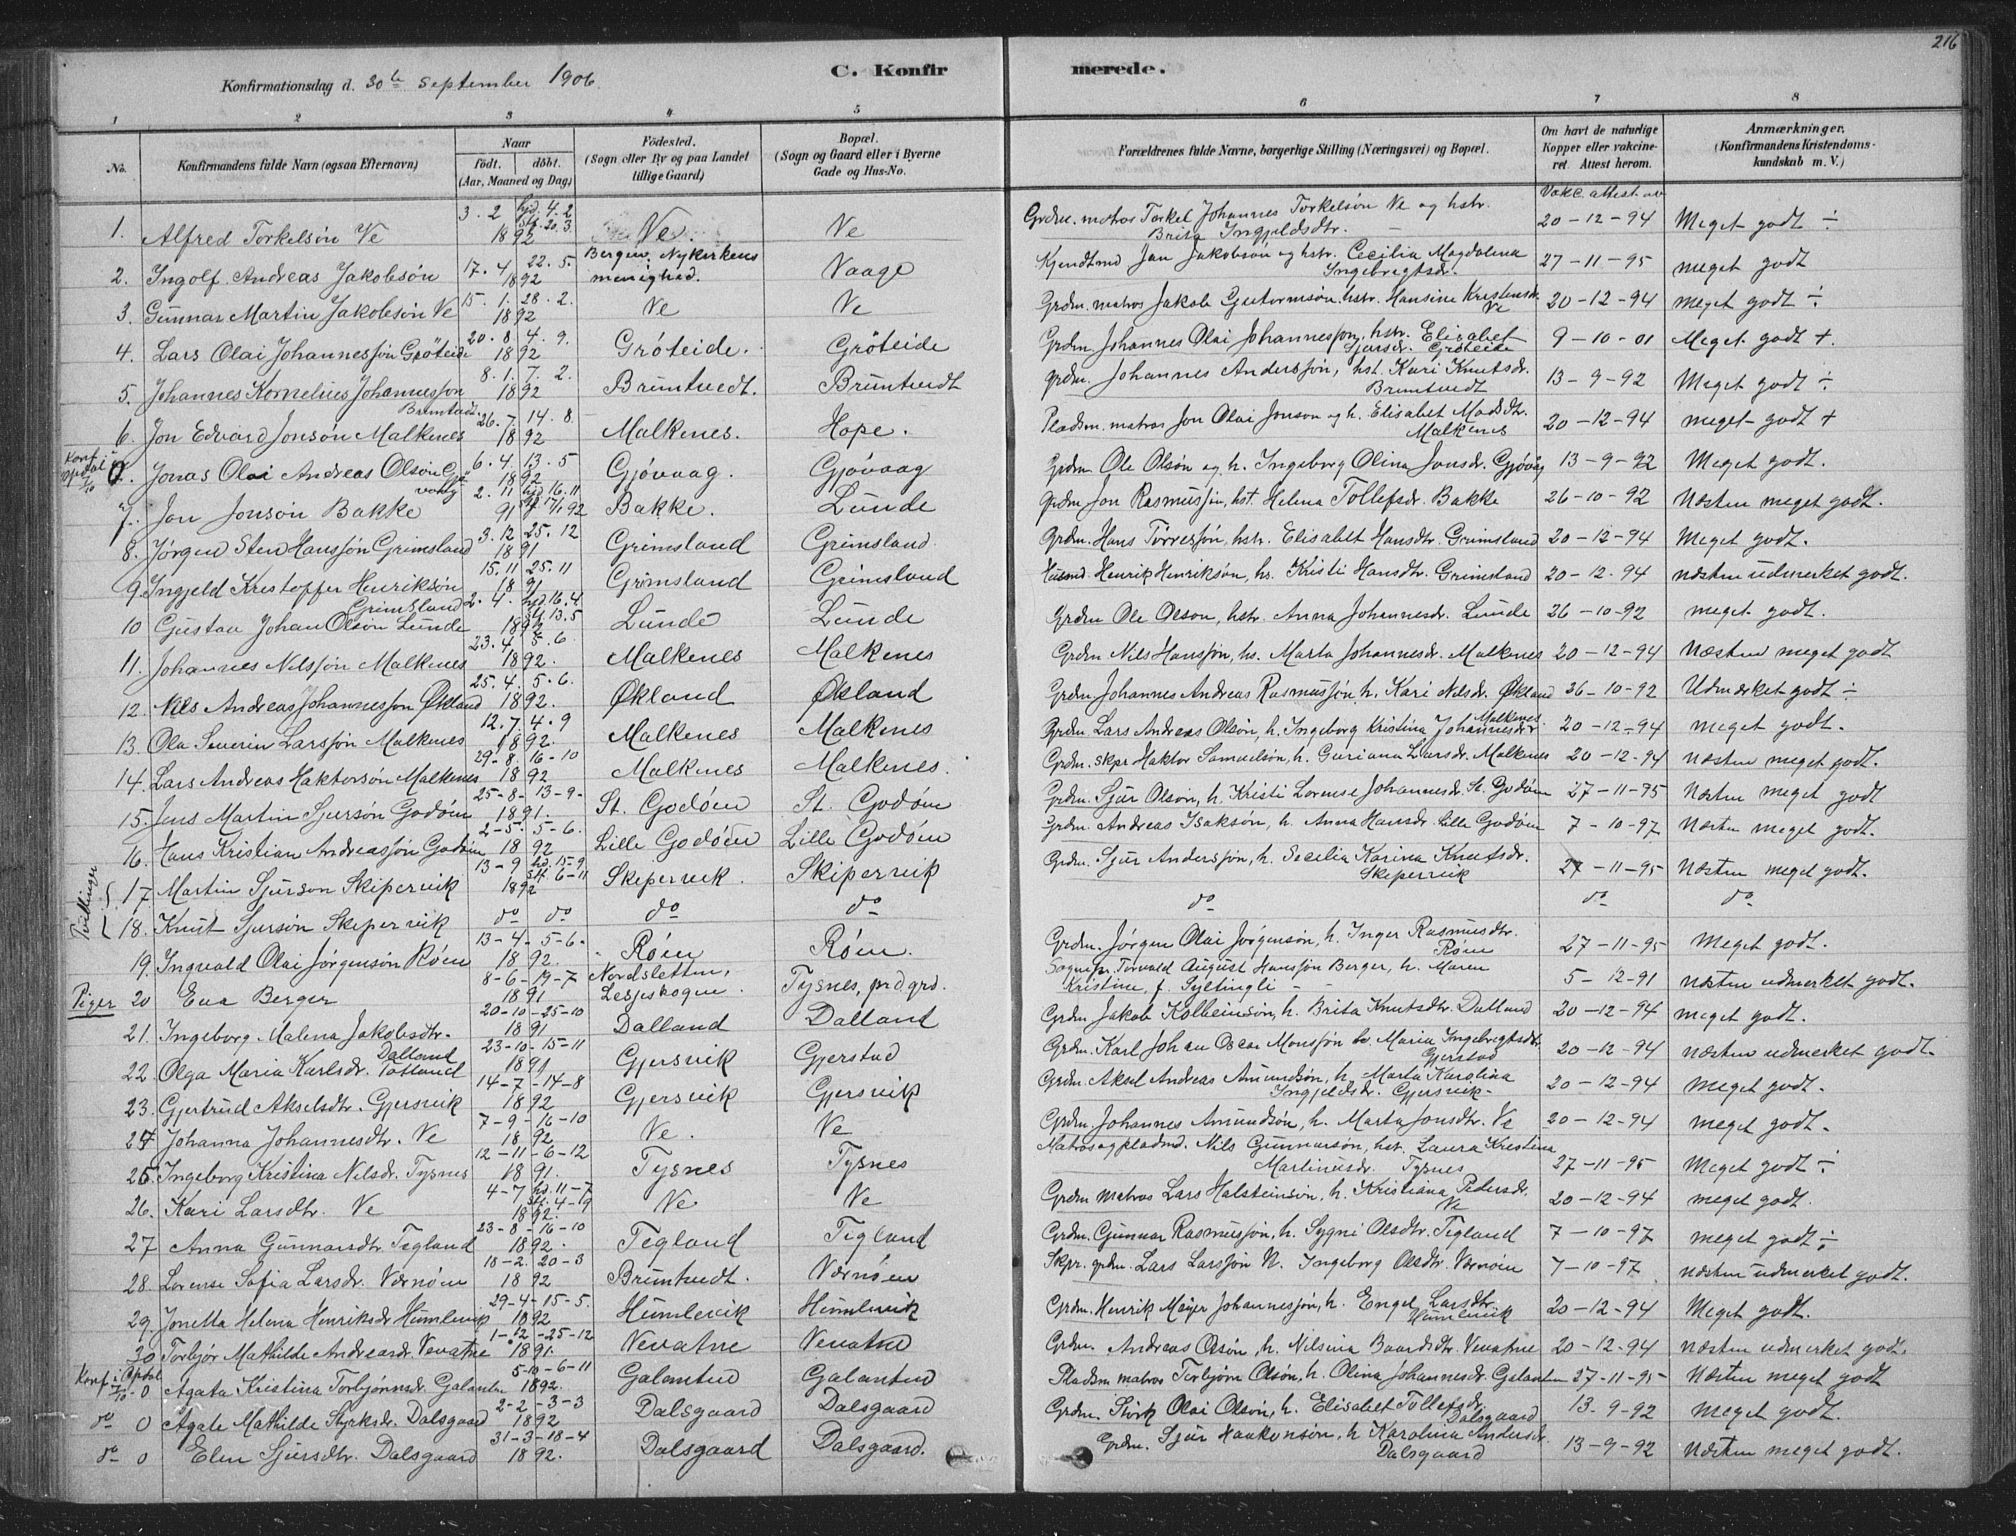 216
Konfirmationsdag d. 30te September 1906.
C. Konfirmerede.
1 2 3 4 5 6 7 8
No. Konfirmandens fulde Navn (ogsaa Efternavn) Naar födt. döbt. (Aar, Maaned og Dag) Födested. (Sogn eller By og paa Landet tillige Gaard) Bopæl. (Sogn og Gaard eller i Byerne Gade og Hus-No. Forældrenes fulde Navne, borgerlige Stilling (Næringsvei) og Bopæl. Om havt de naturlige Kopper eller vakcineret. Attest herom. Anmærkninger. (Konfirmandens Kristendomskundskab m. V.)
Vakc. attest av
1. Alfred Torkelsön Ve 3.2 hjd. 4.2 St. 20.3 1892 Ve. Ve Grdm. matros Torkel Johannes Torkelsön Ve og hstr. Brita Ingjeldsdtr. 20-12-94 Meget godt ÷
2. Ingolf Andreas Jakobsön 17.4 22.5. 1892 Bergen. Nykirkens menighed. Vaage Kjendtmd Jan Jakobsön og hstr. Cecilia Magdalena Ingebregtsdr. 27-11-95 meget godt
3. Gunnar Martin Jakobsön Ve 15.1. 28.2. 1892 Ve Ve Grdm. matros Jakob Gutormsön. hstr. Hansine Kristensdr. Ve 20-12-94 meget godt ÷
4. Lars Olai Johannessön Gröteide 20.8 4.9. 1892 Gröteide. Gröteide Grdm Johannes Olai Johannessön, hstr. Elisabet Sjursdr. Gröteide 9-10-01 Meget godt +
5. Johannes Kornelius Johannesson Bruntvedt. 8.1. 7.2. 1892 Bruntvedt. Bruntvedt grdm. Johannes Anderssön, hst. Kari Knutsdr. Bruntvedt 13-9-92 Meget godt ÷
6. Jon Edvard Jonsön Malkenes 26.7. 14.8 1892 Malkenes. Hope. Pladsm. matros Jon Olai Jonson og h. Elisabet Madsdtr. Malkenes 20-12-94 meget godt +
Konf. i Opdal 7/10 0. Jonas Olai Andreas Olsön Gjövaag 6.4 13.5 1892 Gjövaag. Gjövaag Grdm Ole Olsön og h. Ingeborg Olina Jonsdr. Gjövåg 13-9-92 Meget godt.
7. Jon Jonson Bakke 2.11 hjd 16.11 91 17/1 92 Bakke. Lunde grdm Jon Rasmussön, hst. Helena Tollefsdr. Bakke 26-10-92 Næsten meget godt.
8. Jørgen Sten Hanssön Grimsland 3.12 25.12 1891 Grimsland Grimsland. Grdm. Hans Törressön, hstr. Elisabet Hansdtr. Grimsland 20-12-94 Meget godt.
9. Ingjeld Kristoffer Henriksön Grimsland 15.11 25.11 1891 Grimsland Grimsland Husmd. Henrik Henriksön, hs. Kristi Hansdtr. Grimsland 20-12-94 næsten udmerket godt.
10 Gustav Johan Olsön Lunde 2.4. hjd. 16.4 St. 13.5 1892 Lunde Lunde Grdm Ole Olson, hstr. Anna Johannesdr. Lunde 26-10-92 meget godt.
11. Johannes Nilssön Malkenes 23.4. 5.6. 1892. Malkenes Malkenes Grdm Nils Hanssön, hs. Marta Johannesdr. Malkenes 20-12-94 Næsten meget godt
12. Nils Andreas Johannesson Økland 25.4. 5.6. 1892. Økland Økland Grdm. Johannes Andreas Rasmussön, h. Kari Nilsdr. Økland 26-10-92 Udmærket godt ÷
13. Ola Severin Larssön Malkenes 12.7. 4.9 1892. Malkenes Malkenes Grdm Lars Andreas Olsön, h. Ingeborg Kristina Johannesdr Malkenes. 20-12-94 meget godt.
14. Lars Andreas Haktorson Malkenes 29-8. 16-10 1892 Malkenes Malkenes. Grdm. skpr Haktor Samuelsön, h. Guriana Larsdr. Malkenes 20-12-94 næsten meget godt.
15. Jens Martin Sjursön Godöen 25-8- 13-9- 1891. St. Godöen St. Godöen Grdm. Sjur Olson, h. Kristi Lorense Johannesdr. St. Godöen 27-11-95 Næsten meget godt
16. Hans Kristian Andreassön Godöen 2-5. 5-6. 1892 Lille Godöen Lille Godöen Grdm. Andreas Isaksön, h. Anna Hansdr. Lille Godöen 7-10-97 Næsten meget godt.
Tvillinger
17. Martin Sjurson Skipervik 13-9 hd. 15-9 St. 6-11 1892 Skepervik. Skipervik Grdm. Sjur Anderssön, h. Secilia Karina Knutsdr. Skepervik 27-11-95 Næsten meget godt.
18. Knut Sjursön Skepervik do do do do do do do
19. Ingvald Olai Jörgensön Röen 13-4. 5-6. 1892. Röen Röen. Grdm. Jörgen Olai Jörgensön, h. Inger Rasmusdtr. Röen 27-11-95 Meget godt.
Piger 20 Eva Berger 8-6. 19-7 1891 Nordsletten, Lesjeskogen. Tysnes, prdgrd. Sognepr. Torvald August Hanssön Berger, h. Maren Kristine, f. Syltingli 5-12-91 næsten udmerket godt.
21. Ingeborg Malena Jakobsdtr. Dalland 20-10-25-10 1891 Dalland Dalland Grdm Jakob Kolbeinsön, h. Brita Knutsdtr. Dalland 20-12-94 meget godt.
22. Olga Maria Karlsdr. Totland 23-10. 15-11 1891 Gjersvik Gjerstad Grdm. Karl Johan Oscar Monssön h. Maria Ingebregtsdtr. Gjerstad 20-12-94 næsten udmerket godt.
23. Gjertrud Akselsdtr. Gjersvik 14-7-14-8 1892 Gjersvik Gjersvik Grdm Aksel Andreas Amundsön, h. Marta Karolina Ingjeldsdr. Gjersvik. 20-12-94 meget godt.
24 Johanna Johannesdtr. Ve 7-9-16-10 1892 Ve. Ve Grdm. Johannes Amundsön, h. Marta Jonsdtr. Ve 20-12-94 meget godt.
25. Ingeborg Kristina Nilsdr. Tysnes 12-11-6-12 1891. Tysnes Tysnes Matros og pladmd. Nils Gunnarsön, hst. Laura Kristina Martinusdr. Tysnes 27-11-95 Meget godt ÷
26. Kari Larsdtr. Ve 4-7 hd. 11-7 St. 4-9 1892. Ve Ve Grdm matros Lars Halsteinsön, h. Kristiana Pedersdr. Ve 20-12-94 meget godt.
27 Anna Gunnarsdtr Tegland 23-8-16-10 1892. Tegland Tegland Grdm. Gunnar Rasmussön, h. Sygni Olsdtr. Tegland 7-10-97 meget godt ÷
28. Lorense Sofia Larsdr. Værnöen 18-2. 20-3 1892 Bruntvedt. Værnöen Skpr. grdm. Lars Larssön N. Ingeborg Olsdtr. Værnöen 7-10-97 næsten udmerket godt.
29. Jonetta Helena Henriksdr Humlevik 29-4-15-5. 1892 Humlevik Humlevik Grdm. Henrik Meyer Johannessön, h. Engel Larsdtr. Humlevik 20-12-94 Meget godt.
30 Torbjör Mathilde Andreasdr. Vevatne 1-12-25-12 1891. Vevatne Vevatne Grdm. Andreas Olsön, h. Nilsina Baardsdtr. Vevatne 20-12-94 næsten udmerket godt.
Konf. i Opdal 7/10 0 Agata Kristina Torbjönnsdr. Galanten 5-10-6-11 1892. Galanten Galanten Pladsm matros Torbjörn Olsön, h. Olina Johannesdr. Galanten 27-11-95 Næsten meget godt
do 0 Agate Mathilde Styrksdr. Dalsgaard 2-2-3-3 1892 Dalsgaard Dalsgaard Grdm. Störk Olai Olsön, h. Elisabet Tollefsdr. Dalsgaard 13-9-92 Meget godt.
do 0 Elen Sjursdtr. Dalsgaard 31-3-18-4 1892. Dalsgaard Dalsgaard. Grdm. Sjur Haakonsön, h Karolina Andersdr. Dalsgaard 13-9-92 Næsten meget godt.